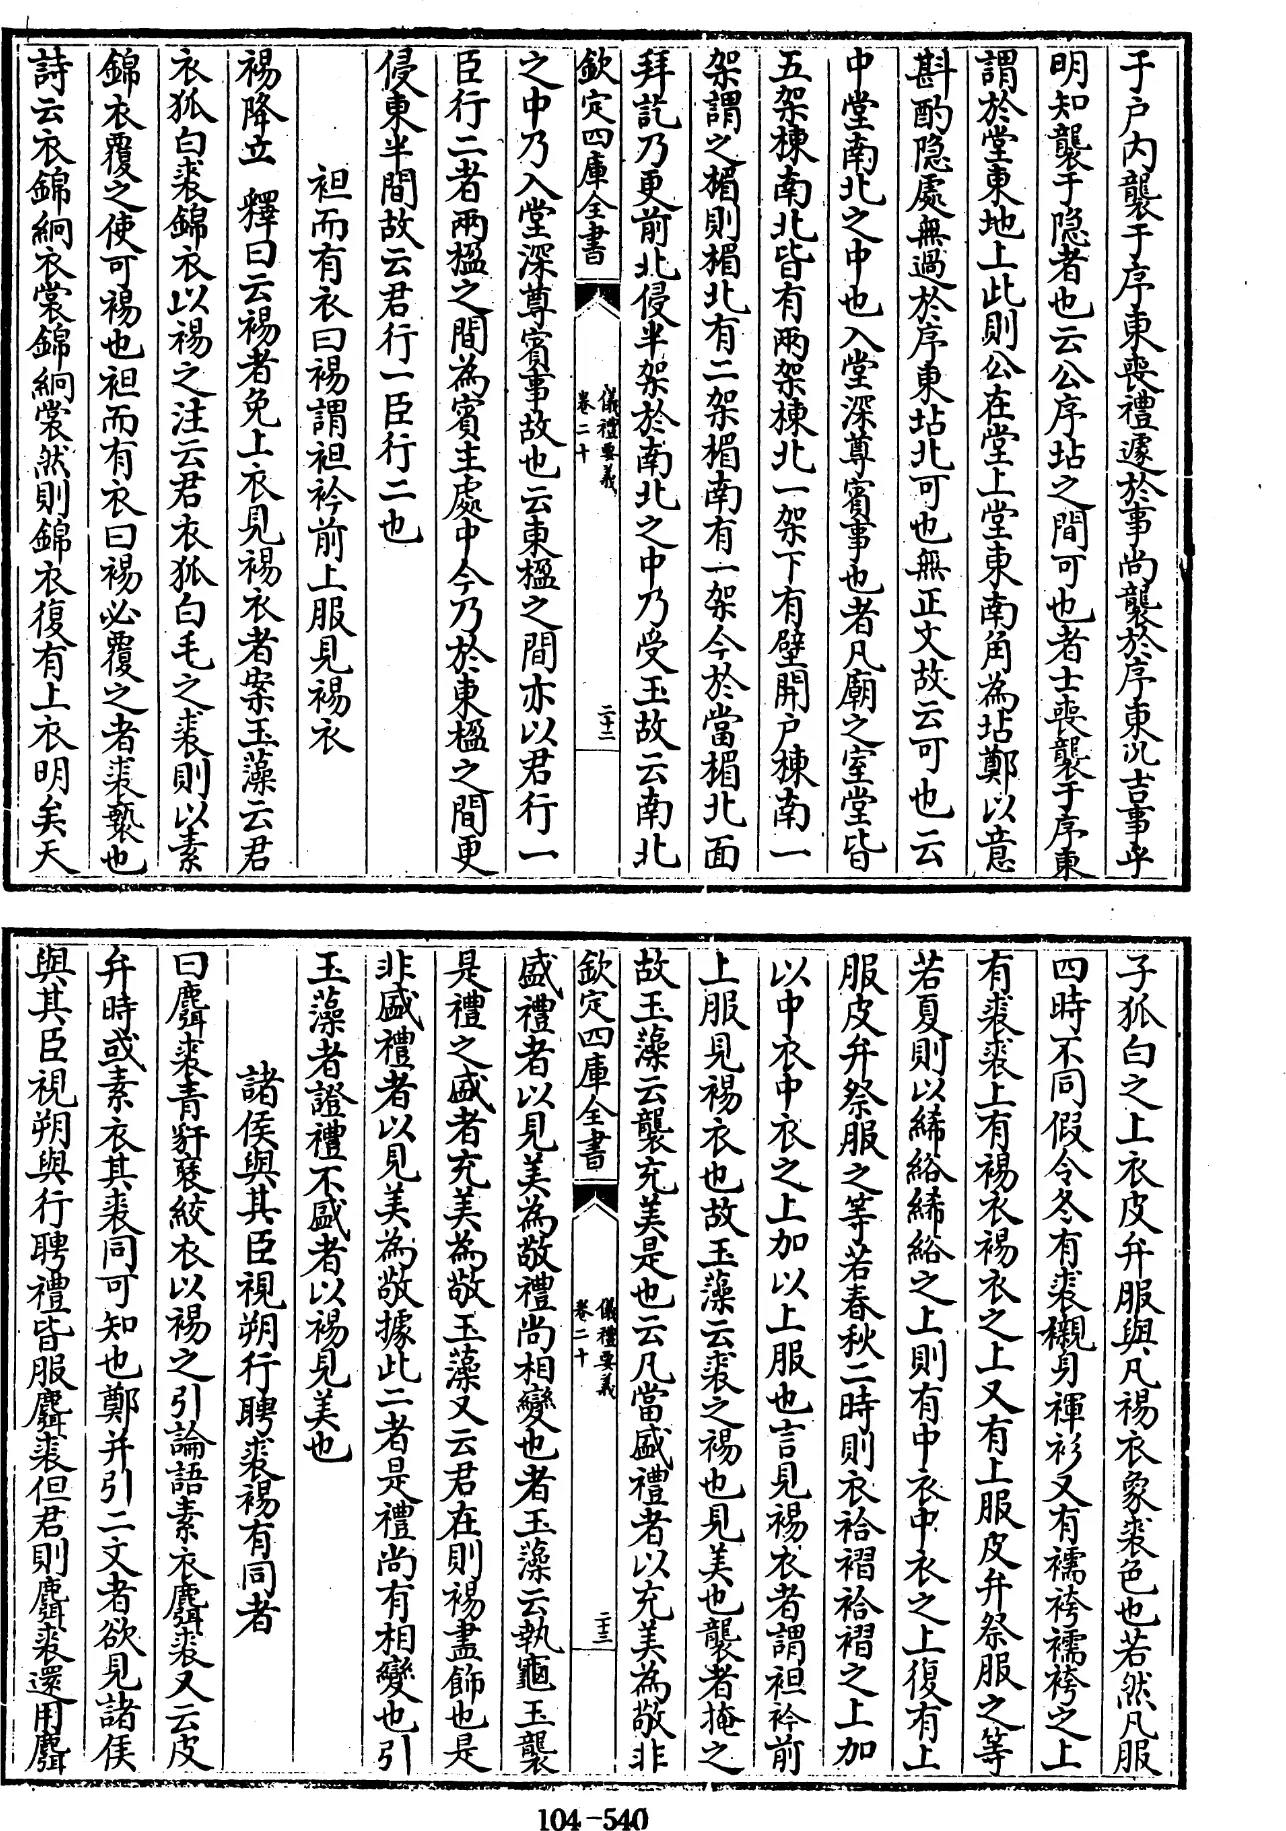 于戶内襲于序東喪禮遽於事尚襲於序東況吉事乎
明知襲于隐者也云公序坫之間可也者士喪襲于序東
謂於堂東地上此則公在堂上堂東南角為坫鄭以意
斟酌隐處無過於序東坫北可也無正文故云可也云
中堂南北之中也入堂深尊賓事也者凡廟之室堂皆
五架棟南北皆有兩架棟北一架下有壁開戶棟南一
架謂之楣則楣北有二架楣南有一架今於當楣北面
拜訖乃更前北侵半架於南北之中乃受玉故云南北
欽定四庫全書
儀禮要義
卷二十
二十二
之中乃入堂深尊賓事故也云東楹之間亦以君行一
臣行二者兩楹之間為賓主處中今乃於東楹之間更
侵東半間故云君行一臣行二也
袒而有衣曰裼謂袒衿前上服見裼衣
裼降立 釋曰云裼者免上衣見裼衣者案玉藻云君
衣狐白裘錦衣以裼之注云君衣狐白毛之裘則以素
錦衣覆之使可裼也袒而有衣曰裼必覆之者裘褻也
詩云衣錦絅衣裳錦絅裳然則錦衣復有上衣明矣天
子狐白之上衣皮弁服與凡裼衣象裘色也若然凡服
四時不同假令冬有裘襯身襌衫又有襦袴襦袴之上
有裘裘上有裼衣裼衣之上又有上服皮弁祭服之等
若夏則以絺綌絺綌之上則有中衣中衣之上復有上
服皮弁祭服之等若春秋二時則衣袷褶袷褶之上加
以中衣中衣之上加以上服也言見裼衣者謂袒衿前
上服見裼衣也故玉藻云裘之裼也見美也襲者掩之
故玉藻云襲充美是也云凡當盛禮者以充美為敬非
欽定四庫全書
儀禮要義
卷二十
二十三
盛禮者以見美為敬禮尚相變也者玉藻云執龜玉襲
是禮之盛者充美為敬玉藻又云君在則裼盡飾也是
非盛禮者以見美為敬據此二者是禮尚有相變也引
玉藻者證禮不盛者以裼見美也
諸侯與其臣視朔行聘裘裼有同者
曰麛裘青豻褎絞衣以裼之引論語素衣麛裘又云皮
弁時或素衣其裘同可知也鄭并引二文者欲見諸侯
與其臣視朔與行聘禮皆服麛裘但君則麛裘還用麛
104-540